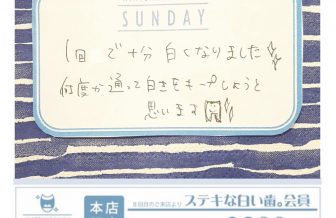 SUNDAY
1回で十分白くなりました
何度か通って白さをキープしようと
思います
本店
8回目のご来店より
ステキな白い歯。会員